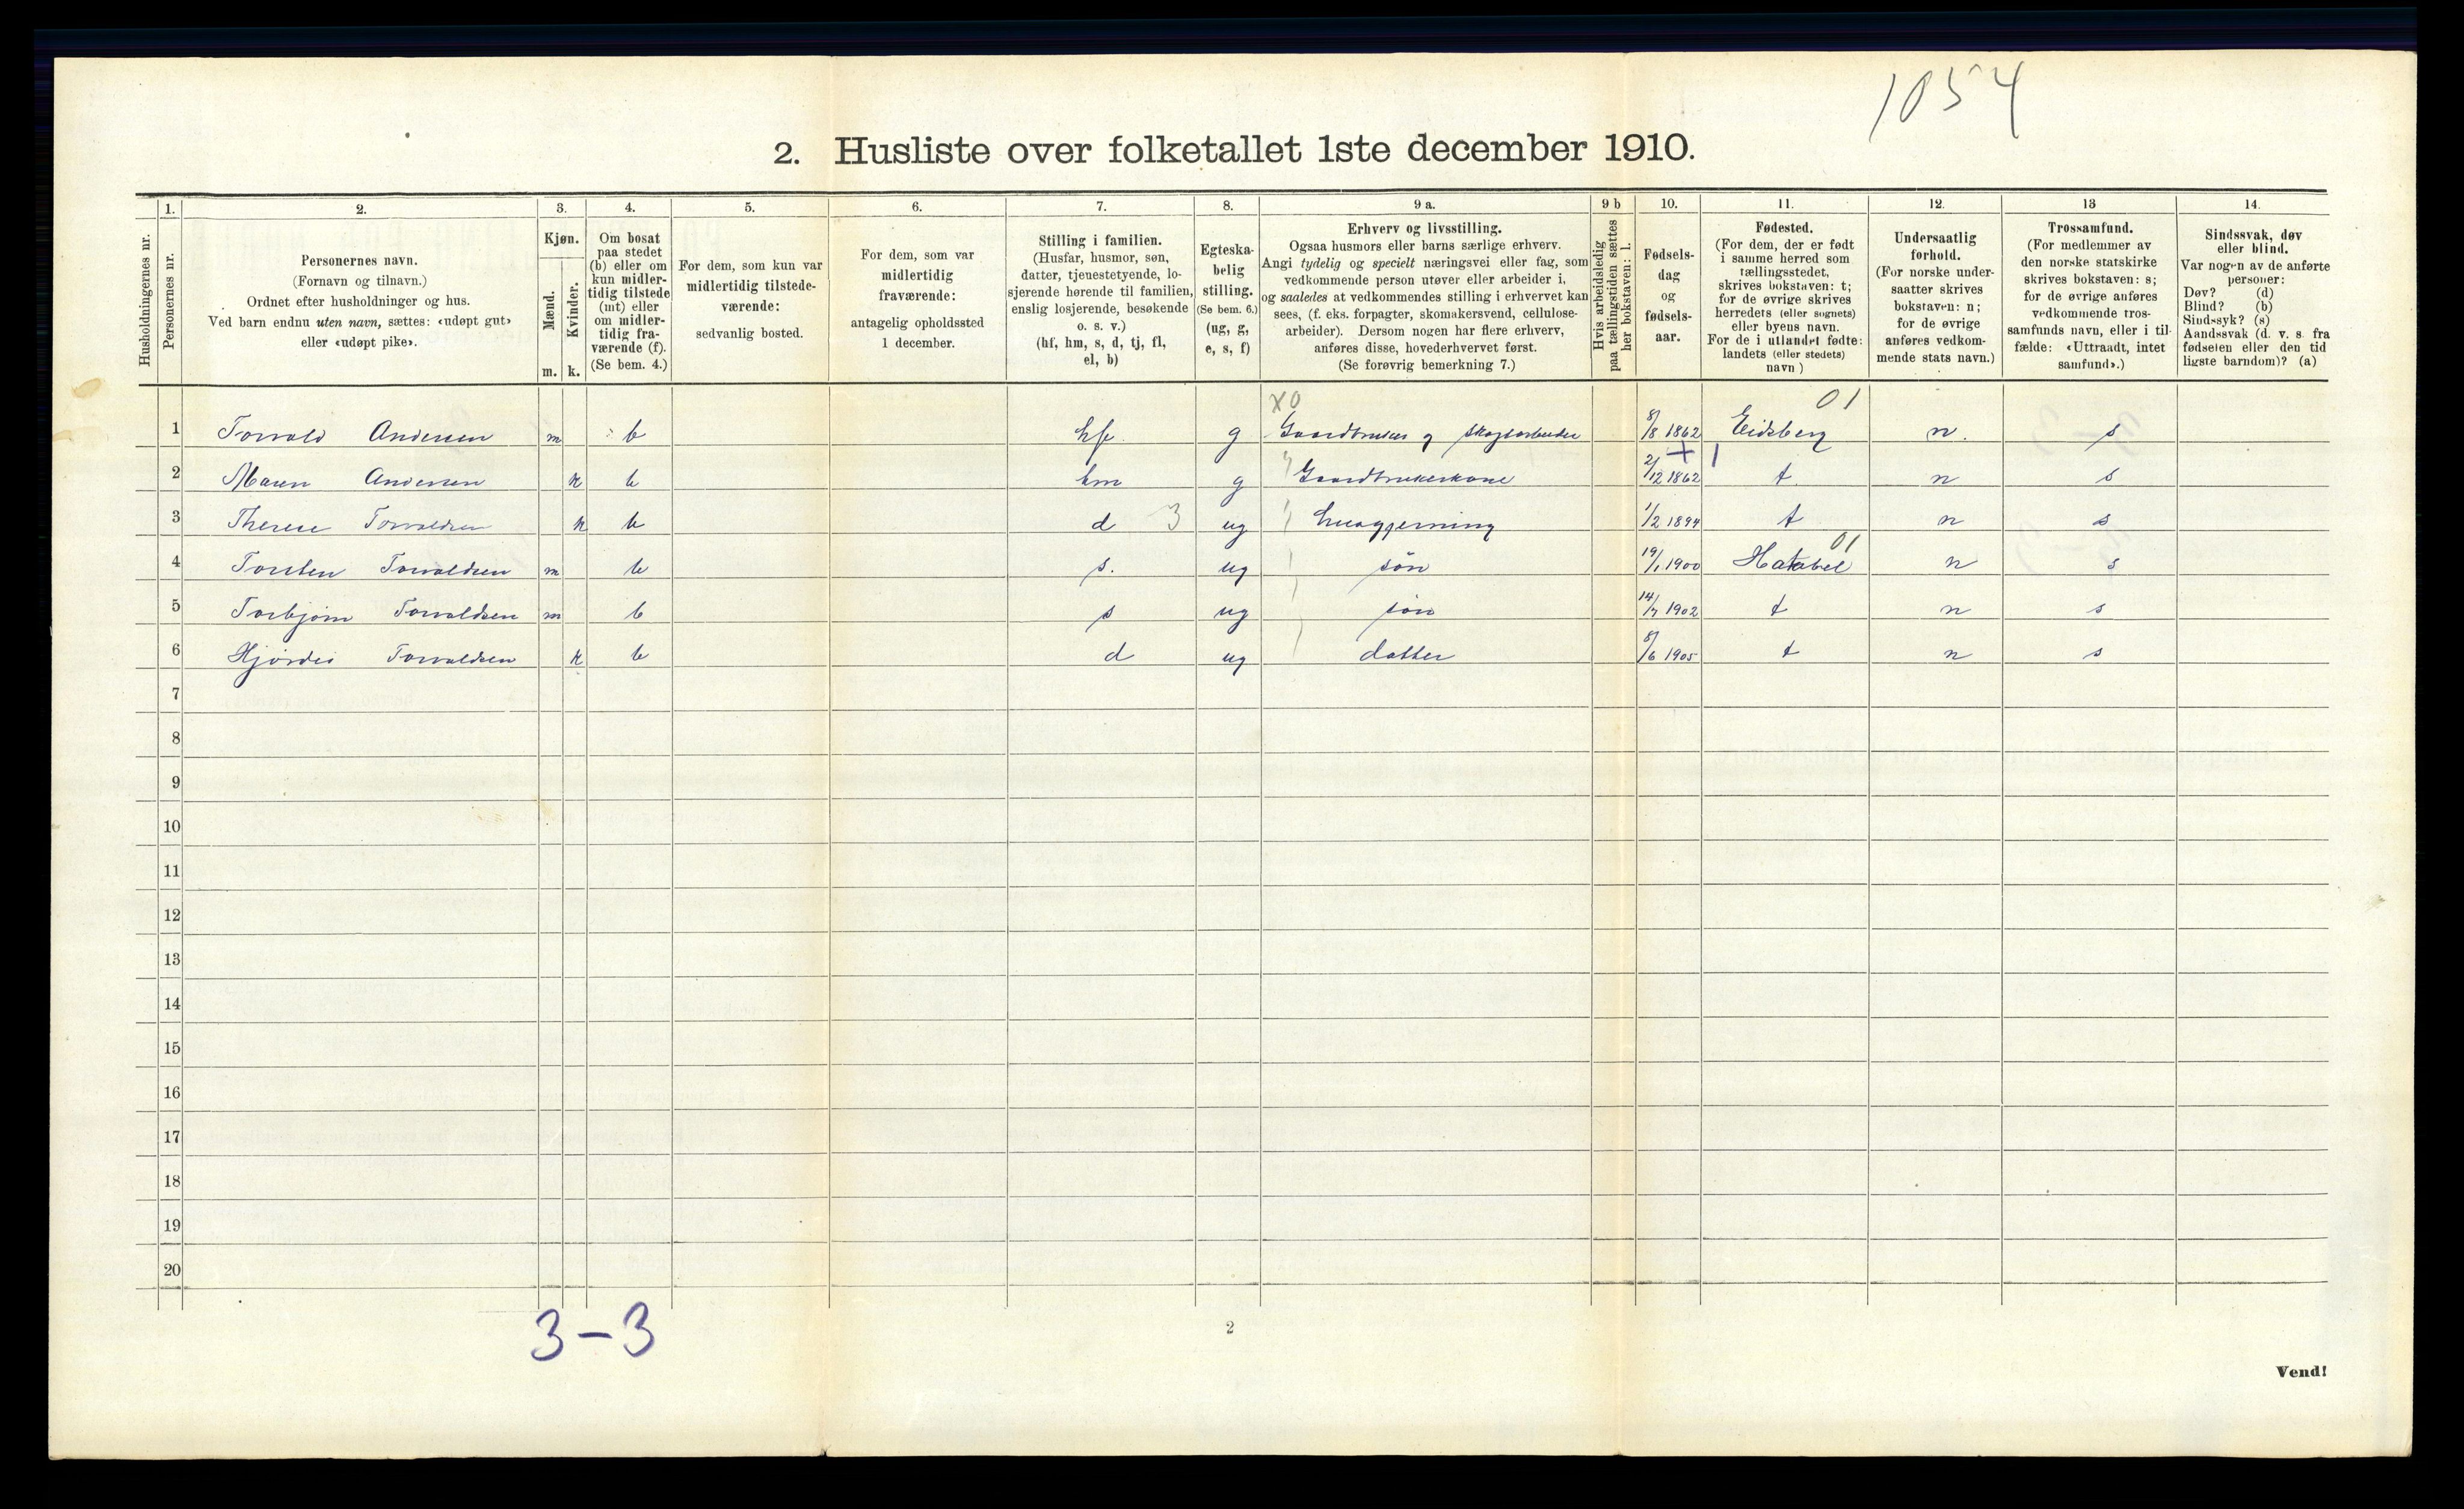 1054
2. Husliste over folketallet 1ste december 1910.
Husholdningernes nr.
1.
Personernes nr.
2.
Personernes navn.
(Fornavn og tilnavn.)
Ordnet efter husholdninger og hus.
Ved barn endnu uten navn, sættes: «udøpt gut»
eller «udøpt pike».
3.
Kjøn.
Mænd.
Kvinder.
m. k.
4.
Om bosat
paa stedet
(b) eller om
kun midler-
tidig tilstede
(mt) eller
om midler-
tidig fra-
værende (f).
(Se bem. 4.)
5.
For dem, som kun var
midlertidig tilstede-
værende:
sedvanlig bosted.
6.
For dem, som var
midlertidig
fraværende:
antagelig opholdssted
1 december.
7.
Stilling i familien.
(Husfar, husmor, søn,
datter, tjenestetyende, lo-
sjerende hørende til familien,
enslig losjerende, besøkende
o. s. v.)
(hf, hm, s, d, tj, fl,
el, b)
8.
Egteska-
belig
stilling.
(Se bem. 6.)
(ug, g,
e, s, f)
9 a.
Erhverv og livsstilling.
Ogsaa husmors eller barns særlige erhverv.
Angi tydelig og specielt næringsvei eller fag, som
vedkommende person utøver eller arbeider i,
og saaledes at vedkommendes stilling i erhvervet kan
sees, (f. eks. forpagter, skomakersvend, cellulose-
arbeider). Dersom nogen har flere erhverv,
anføres disse, hovederhvervet først.
(Se forøvrig bemerkning 7.)
9 b
Hvis arbeidsledig
paa tællingstiden sættes
her bokstaven: l.
10.
Fødsels-
dag
og
fødsels-
aar.
11.
Fødested.
(For dem, der er født
i samme herred som
tællingsstedet,
skrives bokstaven: t;
for de øvrige skrives
herredets (eller sognets)
eller byens navn.
For de i utlandet fødte:
landets (eller stedets)
navn)
12.
Undersaatlig
forhold.
(For norske under-
saatter skrives
bokstaven: n;
for de øvrige
anføres vedkom-
mende stats navn.)
13
Trossamfund.
(For medlemmer av
den norske statskirke
skrives bokstaven: s;
for de øvrige anføres
vedkommende tros-
samfunds navn, eller i til-
fælde: «Uttraadt, intet
samfund».)
14.
Sindssvak, døv
eller blind.
Var nogen av de anførte
personer:
Døv? (d)
Blind? (b)
Sindssyk? (s)
Aandssvak (d. v. s. fra
fødselen eller den tid
ligste barndom)? (a)
X0 01
1 Torvald Andersen m b hf. g Gaardbruker og skogsarbeider 8/8 1862 Eidsberg n. s
2 Maren Andersen k b hm g Gaardbrukerkone 2/12 1862 t. n s
3 Therese Torvaldsen k b d 3 ug husgjerning 1/2 1894 t n s
01
4 Torsten Torvaldsen m b s. ug søn 19/1 1900 Hakabel n s
5 Torbjørn Torvaldsen m b s ug søn 14/7 1902 t n s
6 Hjørdis Torvaldsen k b d ug datter 8/6 1905 t n s
7
8
9
10
11
12
13
14
15
16
17
18
19
20
3-3
2
Vend!